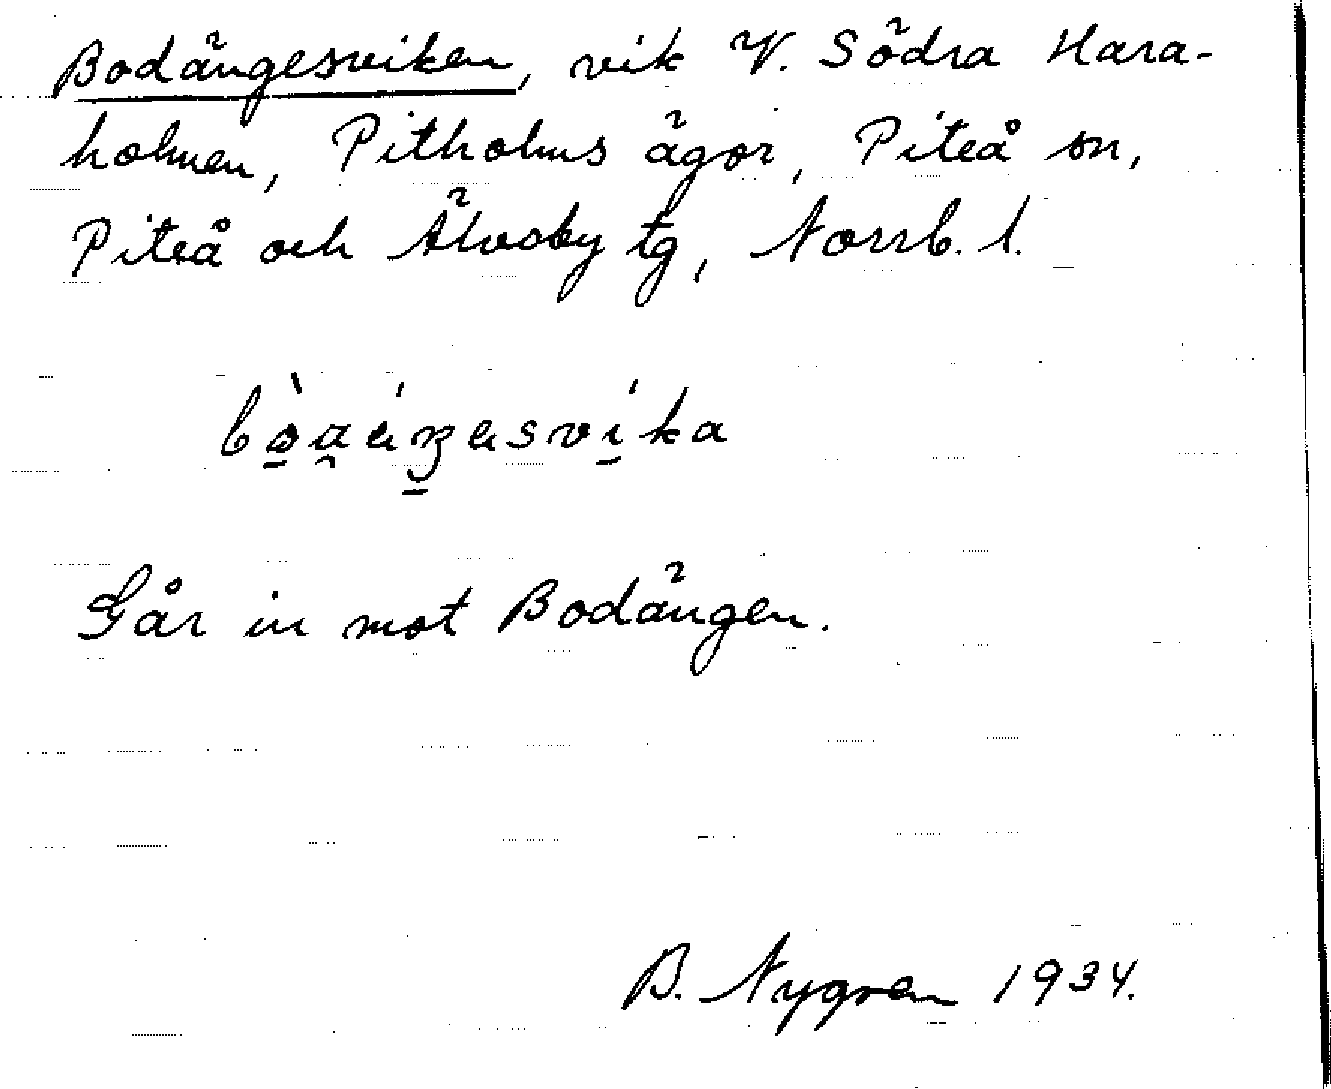 Bodängesviken, vik V. Södra Hara-
holmen, Pitholms ägor, Piteå sn,
Piteå och Älvsby tg, Norrb. l.
Går in mot Bodängen.
B. Nygren 1934.